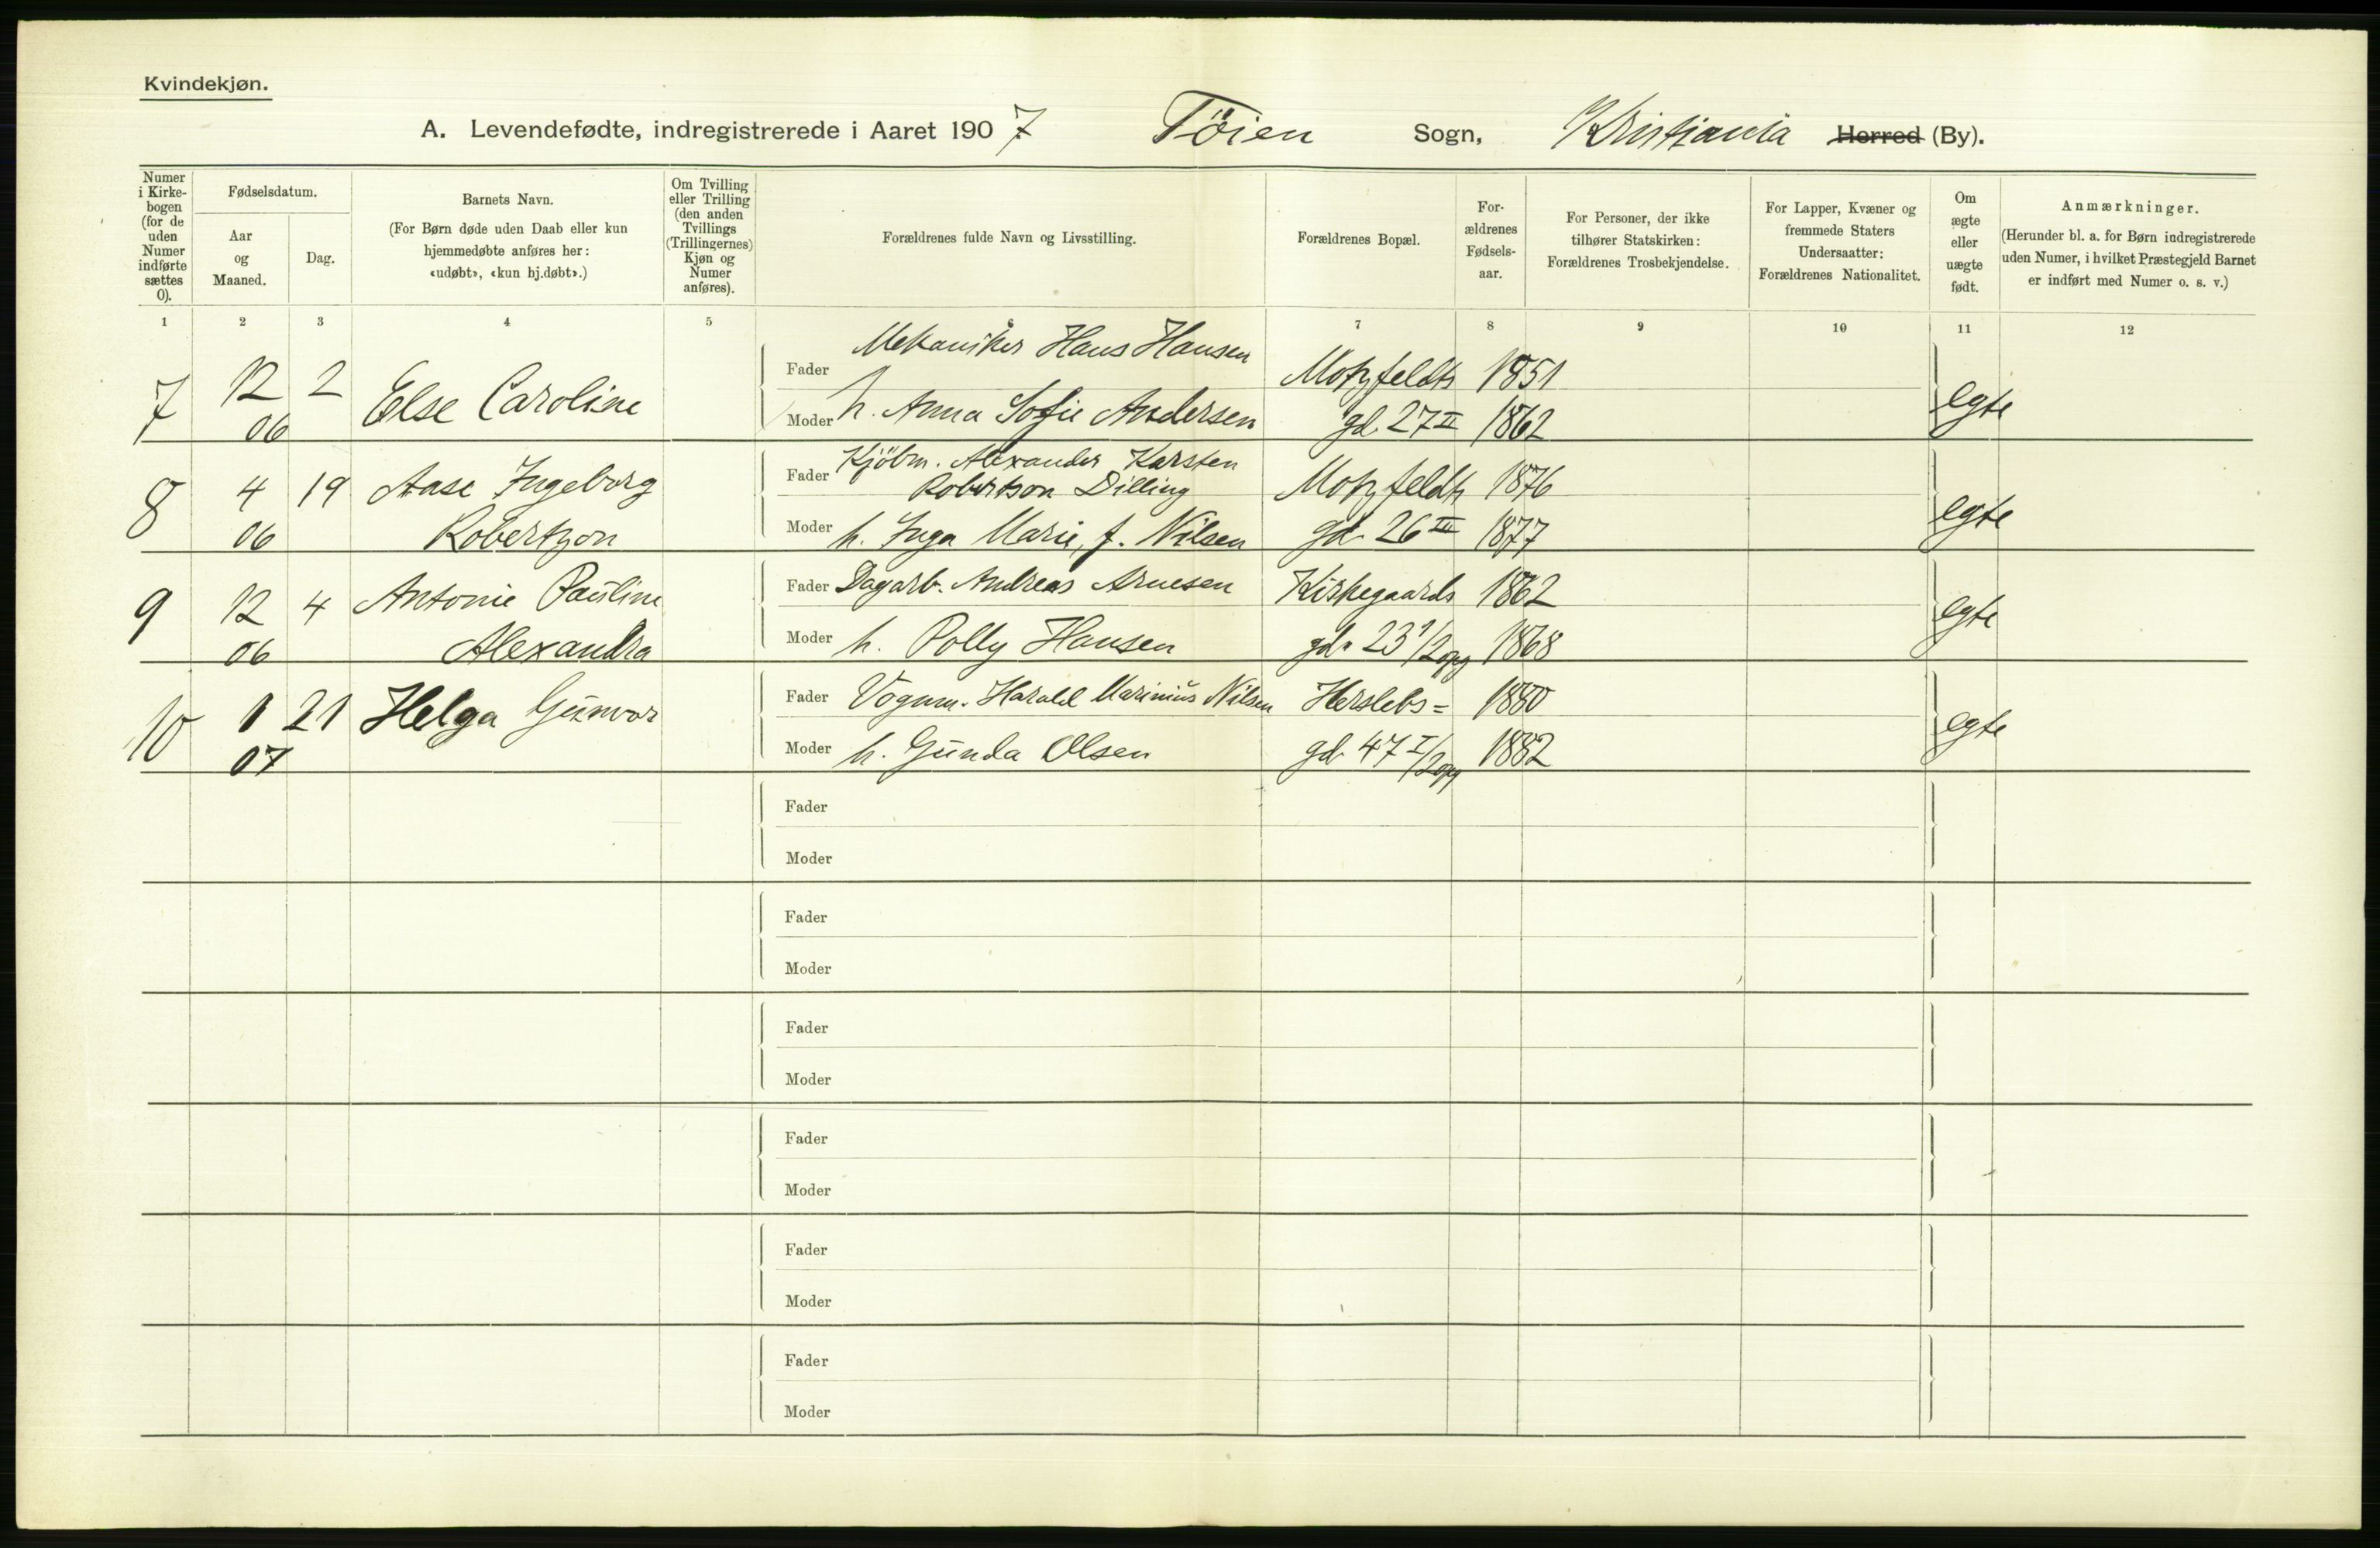 Kvindekjøn.
A. Levendefødte, indregistrerede i Aaret 1907 Töien Sogn, Kristiania Herred (By).
Numer i Kirkebogen (for de uden Numer indførte sættes 0).
Fødselsdatum.
Aar og Maaned.
Dag.
Barnets Navn.
(For Børn døde uden Daab eller kun hjemmedøbte anføres her: «udøbt», «kun hj.døbt».)
Om Tvilling eller Trilling (den anden Tvillings (Trillingernes) Kjøn og Numer anføres).
Forældrenes fulde Navn og Livsstilling.
Forældrenes Bopæl.
For-ældrenes Fødsels-aar.
For Personer, der ikke tilhører Statskirken: Forældrenes Trosbekjendelse.
For Lapper, Kvæner og fremmede Staters Undersaatter: Forældrenes Nationalitet.
Om ægte eller uægte født.
Anmærkninger.
(Herunder bl. a. for Børn indregistrerede uden Numer, i hvilket Præstegjeld Barnet er indført med Numer o. s. v.)
1 2 3 4 5 6 7 8 9 10 11 12
7 12 2 Else Caroline Fader Mekaniker Hans Hansen Motzfeldts 1851 egte
06 Moder h. Anna Sofie Andersen gd. 27 II 1862
8 4 19 Aase Ingeborg Fader Kjöbm. Alexander Karsten
Robertson Dilling Motzfeldts 1876 egte
06 Robertzon Moder h. Inga Marie, f. Nilsen gd. 26 III 1877
9 12 4 Antonie Pauline Fader Dagarb. Andreas Arnesen Kirkegaards 1862 egte
06 Alexandra Moder h. Polly Hansen gd. 23 1/2opg 1868
10 1 21 Helga Gunvor Fader Vognm. Harald Marinius Nilsen Herslebs= 1880 egte
07 Moder h. Gunda Olsen gd. 47 I/2opg 1882
Fader
Moder
Fader
Moder
Fader
Moder
Fader
Moder
Fader
Moder
Fader
Moder